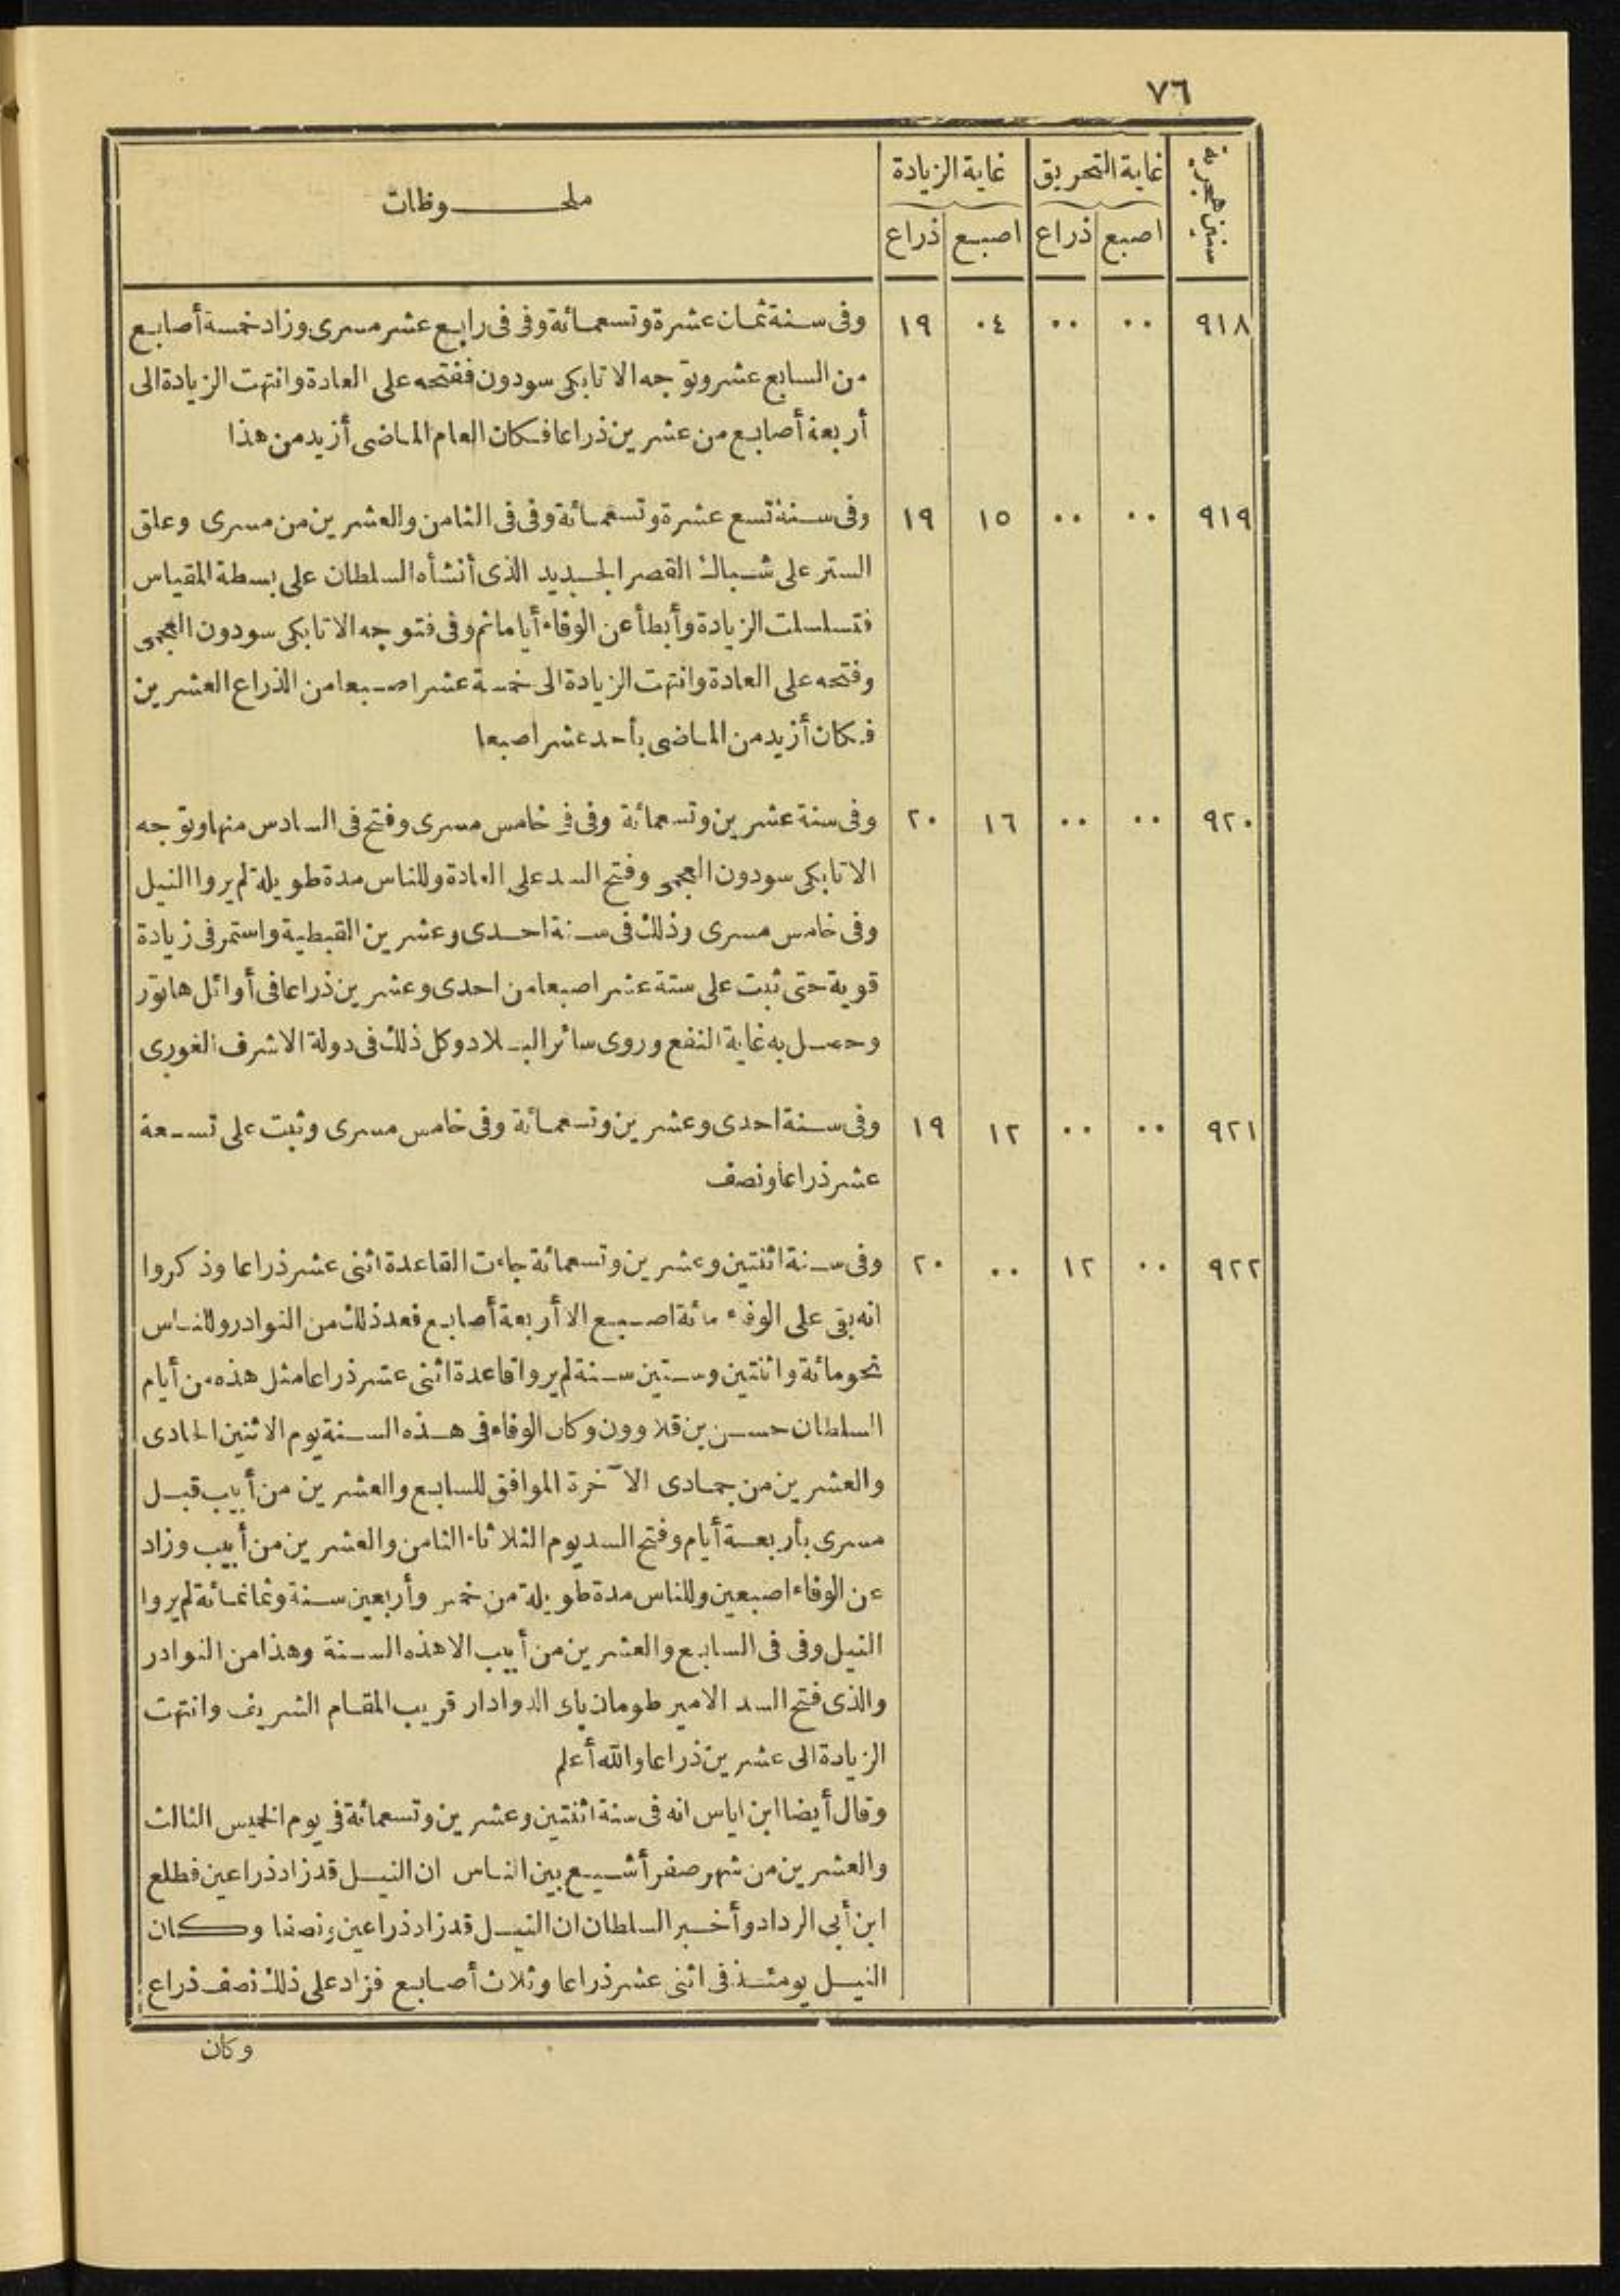 ٧٦
سنين هجرية | غاية التحريق | غاية الزيادة | ملحـــوظات
اصبع | ذراع | اصبع | ذراع
٩١٨ | ٠٠ | ٠٠ | ٠٤ | ١٩ | وفى سنة ثمان عشرة وتسعمائة وفى فى رابع عشر مسرى وزاد خمسة أصابع
من السابع عشر وتوجه الاتابكى سودون ففتحه على العادة وانتهت الزيادة الى
أربعة أصابع من عشرين ذراعا فكان العام الماضى أزيد من هذا
٩١٩ | ٠٠ | ٠٠ | ١٥ | ١٩ | وفى سنة تسع عشرة وتسعمائة وفى فى الثامن والعشرين من مسرى وعلق
الستر على شباك القصر الجديد الذى أنشأه السلطان على بسطة المقياس
فتسلسلت الزيادة وأبطأ عن الوفاء أياما ثم وفى فتوجه الاتابكى سودون العجمى
وفتحه على العادة وانتهت الزيادة الى خمسة عشر اصبعا من الذراع العشرين
فكان أزيد من الماضى بأحد عشر اصبعا
٩٢٠ | ٠٠ | ٠٠ | ١٦ | ٢٠ | وفى سنة عشرين وتسعمائة وفى فى خامس مسرى وفتح فى السادس منها وتوجه
الاتابكى سودون العجمى وفتح السد على العادة وللناس مدة طويلة لم يروا النيل
وفى خامس مسرى وذلك فى سنة احدى وعشرين القبطية واستمر فى زيادة
قوية حتى ثبت على ستة عشر اصبعا من احدى وعشرين ذراعا فى أوائل هاتور
وحصل به غاية النفع وروى سائر البلاد وكل ذلك فى دولة الاشرف الغورى
٩٢١ | ٠٠ | ٠٠ | ١٢ | ١٩ | وفى سنة احدى وعشرين وتسعمائة وفى خامس مسرى وثبت على تسعة
عشر ذراعا ونصف
٩٢٢ | ٠٠ | ١٢ | ٠٠ | ٢٠ | وفى سنة اثنتين وعشرين وتسعمائة جاءت القاعدة اثنى عشر ذراعا وذكروا
انه بقى على الوفاء مائة اصبع الا أربعة أصابع فعد ذلك من النوادر وللناس
نحو مائة واثنتين وستين سنة لم يروا قاعدة اثنى عشر ذراعا مثل هذه من أيام
السلطان حسن بن قلاوون وكان الوفاء فى هذه السنة يوم الاثنين الحادى
والعشرين من جمادى الآخرة الموافق للسابع والعشرين من أبيب قبل
مسرى بأربعة أيام وفتح السد يوم الثلاثاء الثامن والعشرين من أبيب وزاد
عن الوفاء اصبعين وللناس مدة طويلة من خمس وأربعين سنة وثمانمائة لم يروا
النيل وفى فى السابع والعشرين من أبيب الا هذه السنة وهذا من النوادر
والذى فتح السد الامير طومان باى الدوادار قريب المقام الشريف وانتهت
الزيادة الى عشرين ذراعا والله أعلم
وقال أيضا ابن اياس انه فى سنة اثنتين وعشرين وتسعمائة فى يوم الخميس الثالث
والعشرين من شهر صفر أشيع بين الناس ان النيل قد زاد ذراعين فطلع
ابن أبى الرداد وأخبر السلطان ان النيل قد زاد ذراعين ونصفا وكان
النيل يومئذ فى اثنى عشر ذراعا وثلاث أصابع فزاد على ذلك نصف ذراع
وكان